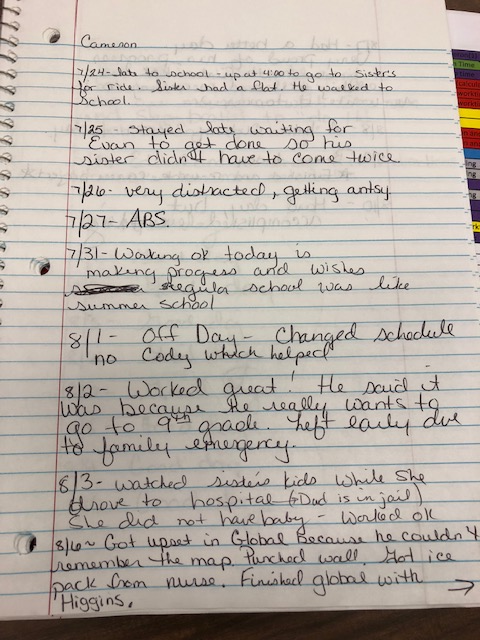 Cameron
7/24- late to school - up at 4:00 to go to sister's
for ride. Sister had a flat. He walked to
School.
7/25 - stayed late waiting for
Evan to get done so his
sister didn't have to come twice.
7/26- very distracted, getting antsy
7/27- ABS.
7/31- Working ok today is
making progress and wishes
regula school was like
summer school
8/1- Off Day - Changed schedule
no Cody which helped
8/2- Worked great! He said it
was because he really wants to
go to 9th grade. Left early due
to family emergency.
8/3- watched sister's kids while she
drove to hospital (Dad is in jail)
She did not have baby - Worked ok
8/6~ Got upset in Global because he couldn't
remember the map. Punched wall. Got ice
pack from nurse. Finished global with
Higgins. →
Time